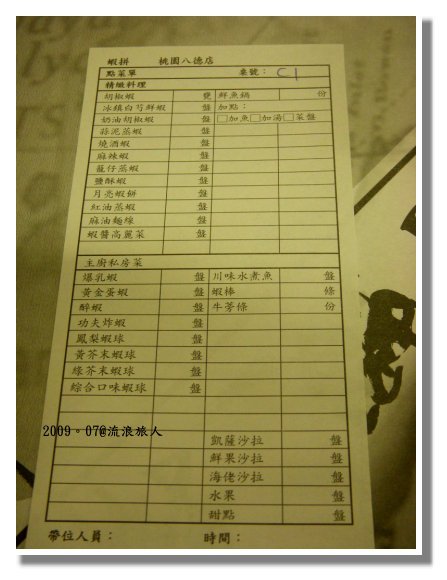 蝦拼 桃園八德店
點菜單 桌號： C1
精緻料理
胡椒蝦 甕 鮮魚鍋 份
冰鎮白芍鮮蝦 盤 加點：
奶油胡椒蝦 盤 □加魚□加湯□菜盤
蒜泥蒸蝦 盤
燒酒蝦 盤
麻辣蝦 盤
籠仔蒸蝦 盤
鹽酥蝦 盤
月亮蝦餅 盤
紅油蒸蝦 盤
麻油麵線 盤
蝦醬高麗菜 盤
主廚私房菜
爆乳蝦 盤 川味水煮魚 盤
黃金蛋蝦 盤 蝦棒 條
醉蝦 盤 牛蒡條 份
功夫炸蝦 盤
鳳梨蝦球 盤
黃芥末蝦球 盤
綠芥末蝦球 盤
綜合口味蝦球 盤
2009。07@流浪旅人
凱薩沙拉 盤
鮮果沙拉 盤
海佬沙拉 盤
水果 盤
甜點 盤
帶位人員： 時間：